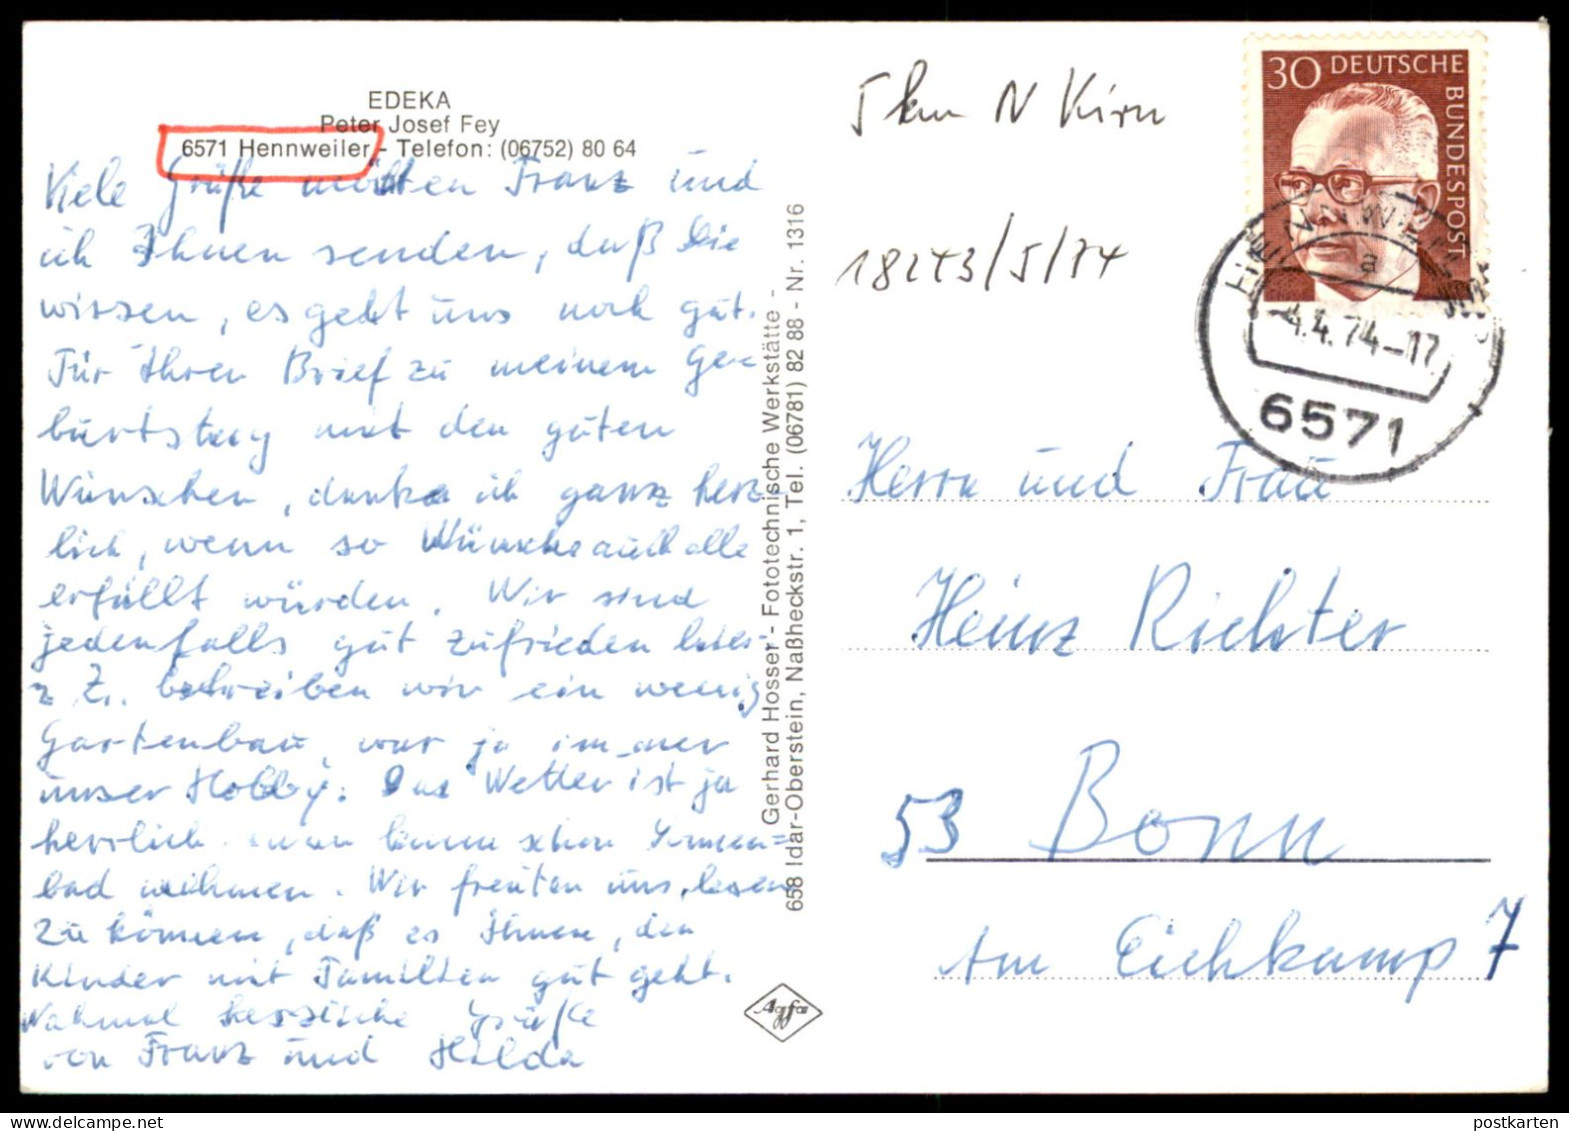 EDEKA
Peter Josef Fey
6571 Hennweiler - Telefon: (06752) 80 64
Viele Grüße möchten Franz und
ich Ihnen senden, daß Sie
wissen, es geht uns noch gut.
Für Ihren Brief zu meinem Ge-
burtstag mit den guten
Wünschen, danke ich ganz herz-
lich, wenn so Wünsche auch alle
erfüllt würden. Wir sind
jedenfalls gut zufrieden
z. Zt. betreiben wir ein wenig
Gartenbau, war ja immer
unser Hobby. Das Wetter ist ja
herrlich. man kann schon Sonnen=
bad nehmen. Wir freuten uns, lesen
zu können, daß es Ihnen, den
Kinder mit Familien gut geht.
Nochmal herzliche Grüße
von Franz und Hilda
Gerhard Hosser - Fototechnische Werkstätte -
658 Idar-Oberstein, Naßheckstr. 1, Tel. (06781) 82 88 - Nr. 1316
Agfa
5 km N Kirn
18243/5/74
30 DEUTSCHE
BUNDESPOST
HENNWEILER
a
4.4.74-17
6571
Herrn und Frau
Heinz Richter
53 Bonn
Am Eichkamp 7
postkarten